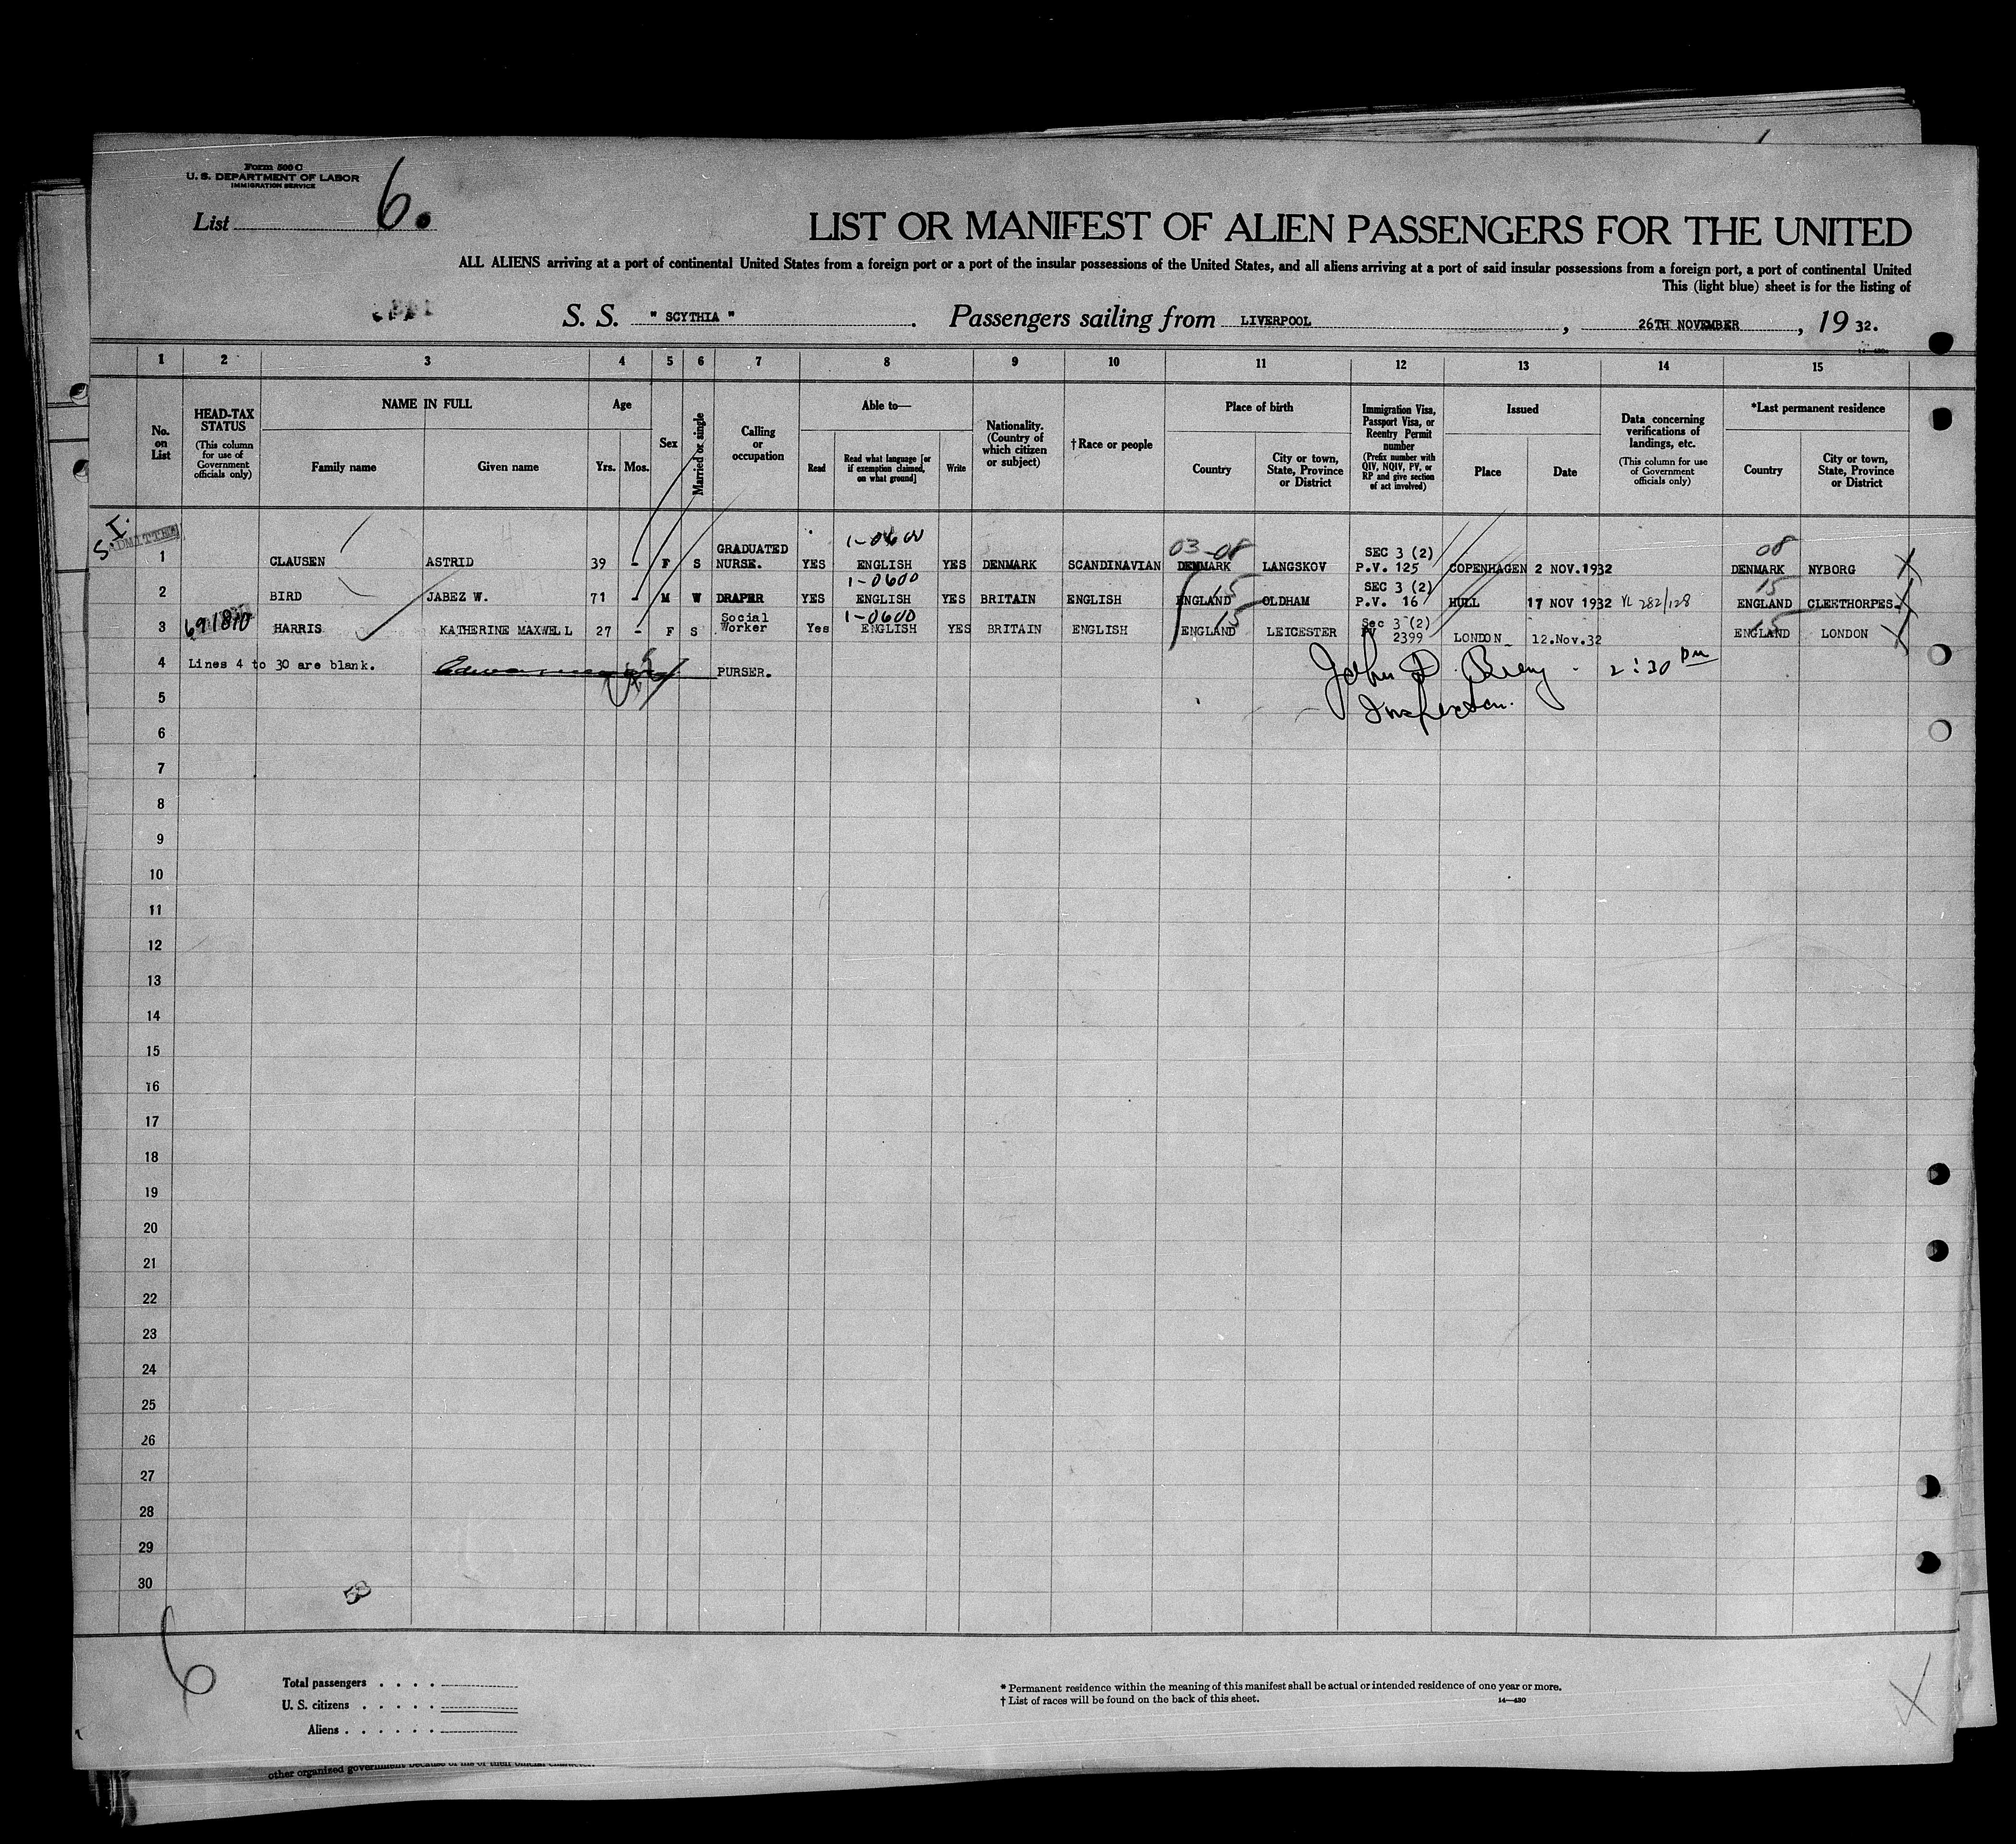 Form 500 C
U. S. DEPARTMENT OF LABOR
IMMIGRATION SERVICE
List 6.
LIST OR MANIFEST OF ALIEN PASSENGERS FOR THE UNITED
ALL ALIENS arriving at a port of continental United States from a foreign port or a port of the insular possessions of the United States, and all aliens arriving at a port of said insular possessions from a foreign port, a port of continental United
This (light blue) sheet is for the listing of
S. S. " SCYTHIA " . Passengers sailing from LIVERPOOL , 26TH NOVEMBER , 19 32.
1 2 3 4 5 6 7 8 9 10 11 12 13 14 15
No. on List
HEAD-TAX STATUS (This column for use of Government officials only)
NAME IN FULL
Family name Given name
Age
Yrs. Mos.
Sex
Married or single
Calling or occupation
Able to—
Read
Read what language [or if exemption claimed, on what ground]
Write
Nationality. (Country of which citizen or subject)
†Race or people
Place of birth
Country
City or town, State, Province or District
Immigration Visa, Passport Visa, or Reentry Permit number (Prefix number with QIV, NQIV, PV, or RP and give section of act involved)
Issued
Place Date
Data concerning verifications of landings, etc. (This column for use of Government officials only)
*Last permanent residence
Country
City or town, State, Province or District
S.I. ADMITTED
1-0600 03-08 08
1 CLAUSEN ASTRID 39 - F S GRADUATED NURSE. YES ENGLISH YES DENMARK SCANDINAVIAN DENMARK LANGSKOV SEC 3 (2) P.V. 125 COPENHAGEN 2 NOV.1932 DENMARK NYBORG X
1-0600 15 15
2 BIRD JABEZ W. 71 - M W DRAPER YES ENGLISH YES BRITAIN ENGLISH ENGLAND OLDHAM SEC 3 (2) P.V. 16 HULL 17 NOV 1932 VL 282/128 ENGLAND CLEETHORPES. X
1-0600 15 15
3 691810 HARRIS KATHERINE MAXWELL 27 - F S Social Worker Yes ENGLISH YES BRITAIN ENGLISH ENGLAND LEICESTER Sec 3 (2) PV 2399 LONDON 12.Nov.32 ENGLAND LONDON X
4 Lines 4 to 30 are blank. PURSER. John D. 2:30 pm
Inspector.
5
6
7
8
9
10
11
12
13
14
15
16
17
18
19
20
21
22
23
24
25
26
27
28
29
30
6
Total passengers . . . .
U. S. citizens . . . . .
Aliens . . . . . .
* Permanent residence within the meaning of this manifest shall be actual or intended residence of one year or more.
† List of races will be found on the back of this sheet. 14—430
X